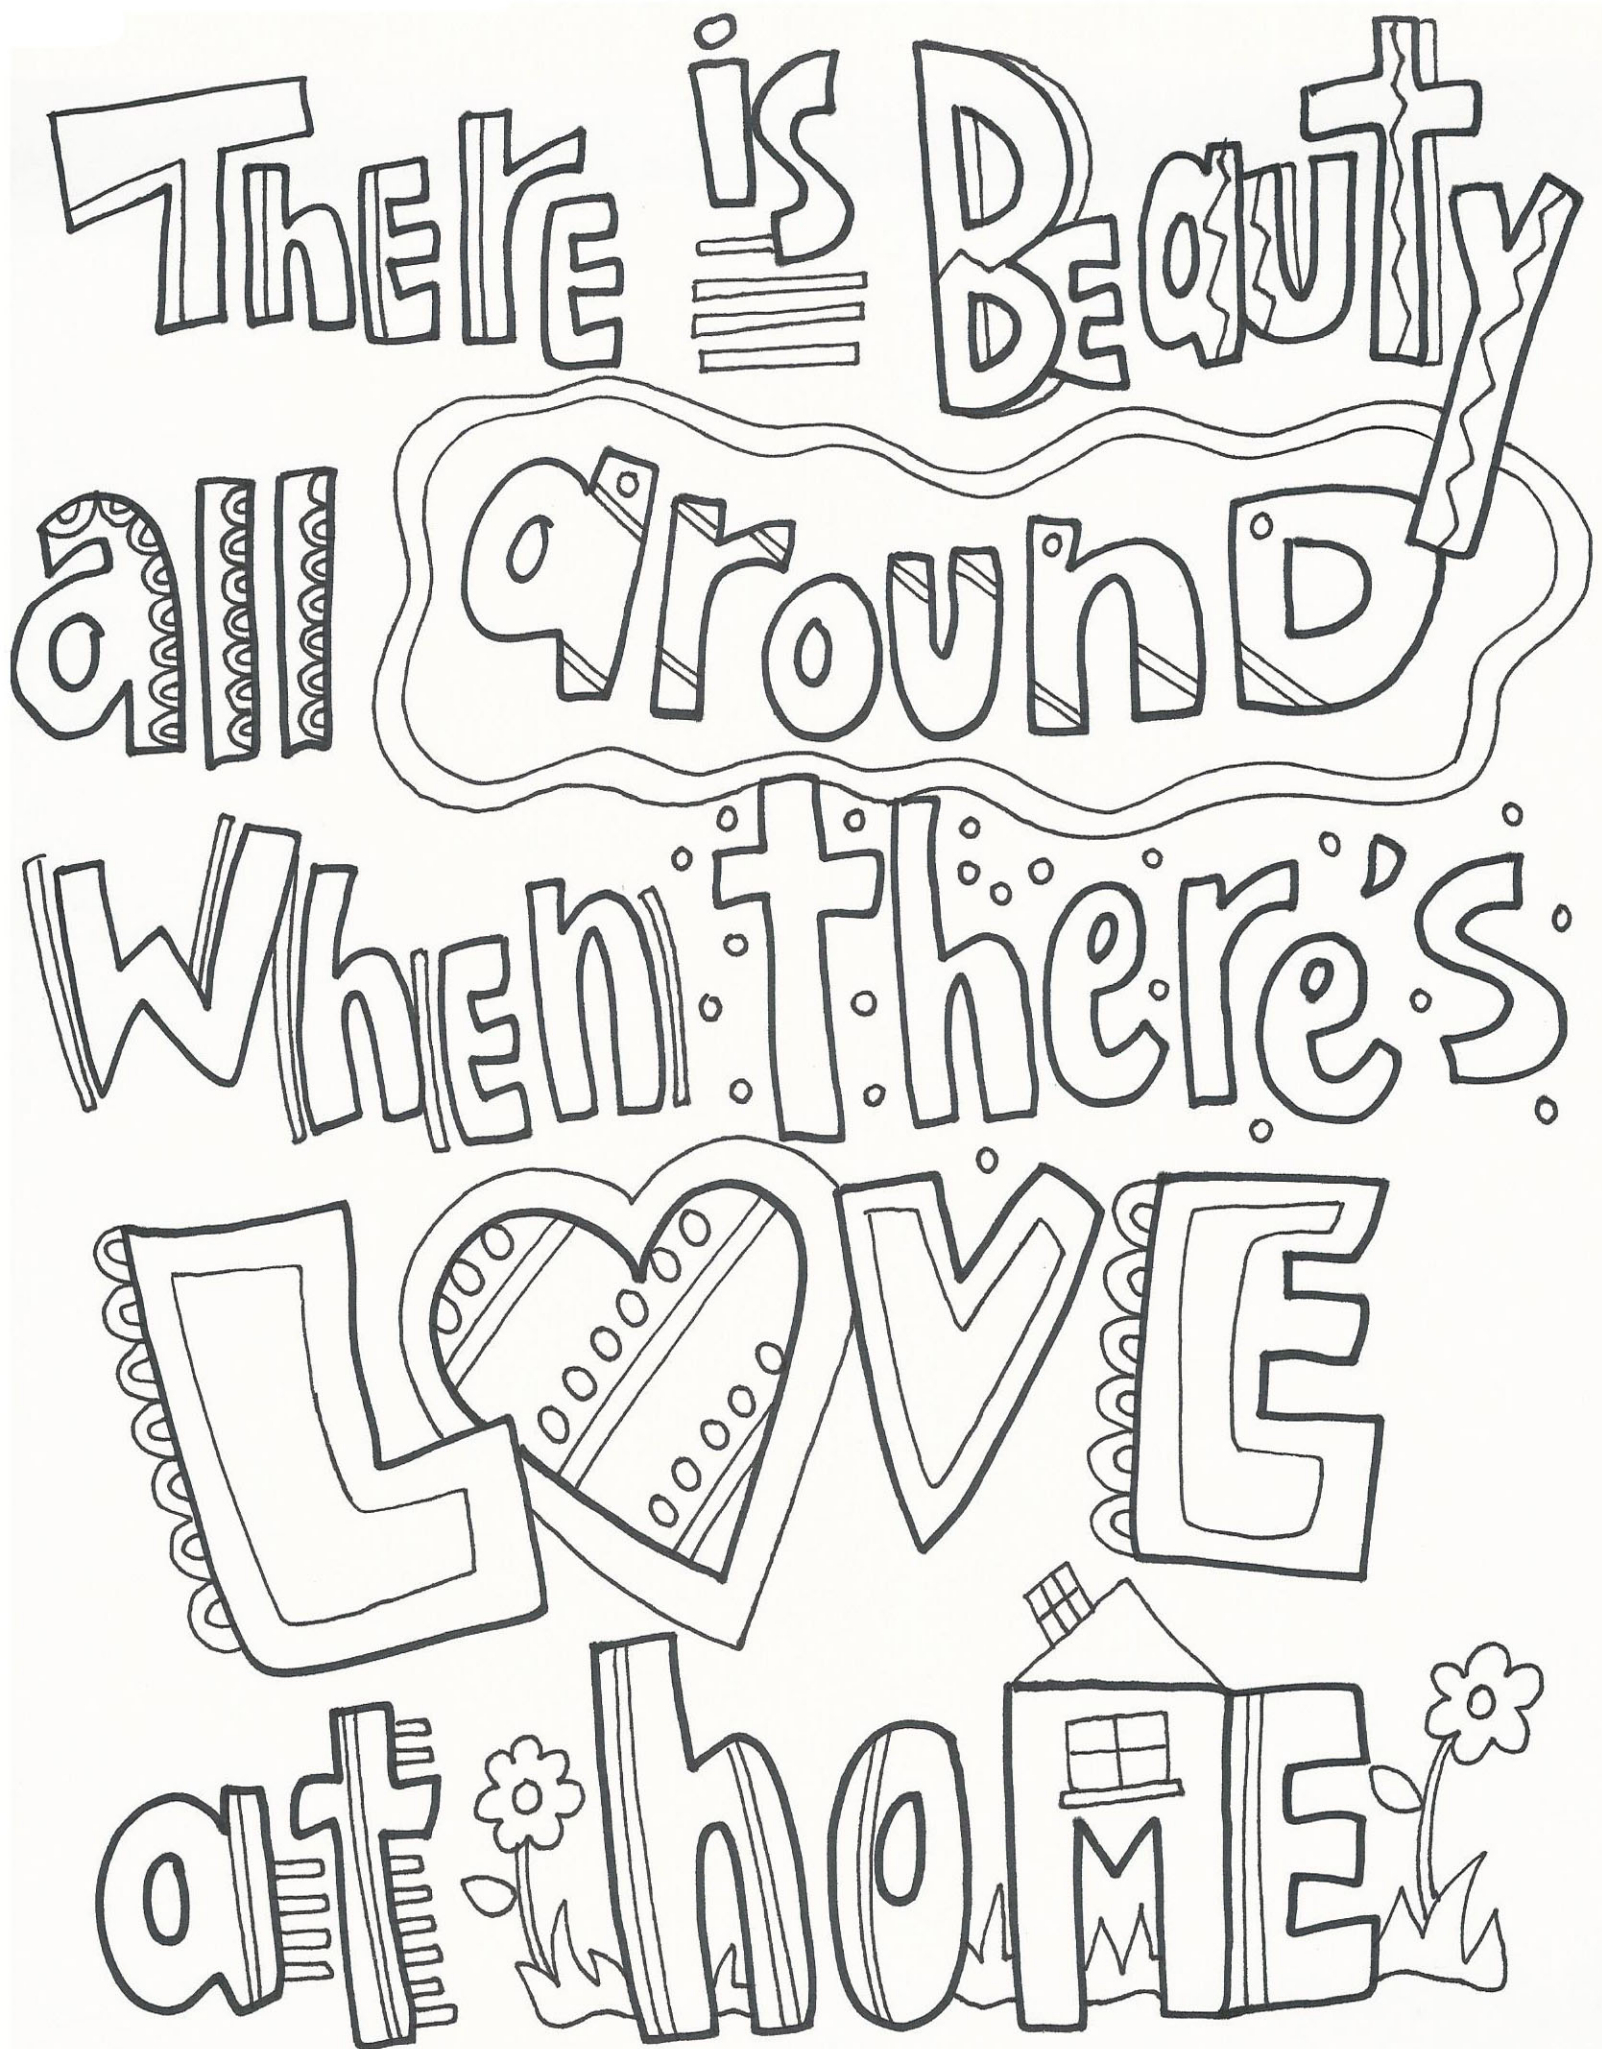 There is Beauty
all around
when there's
LOVE
at home